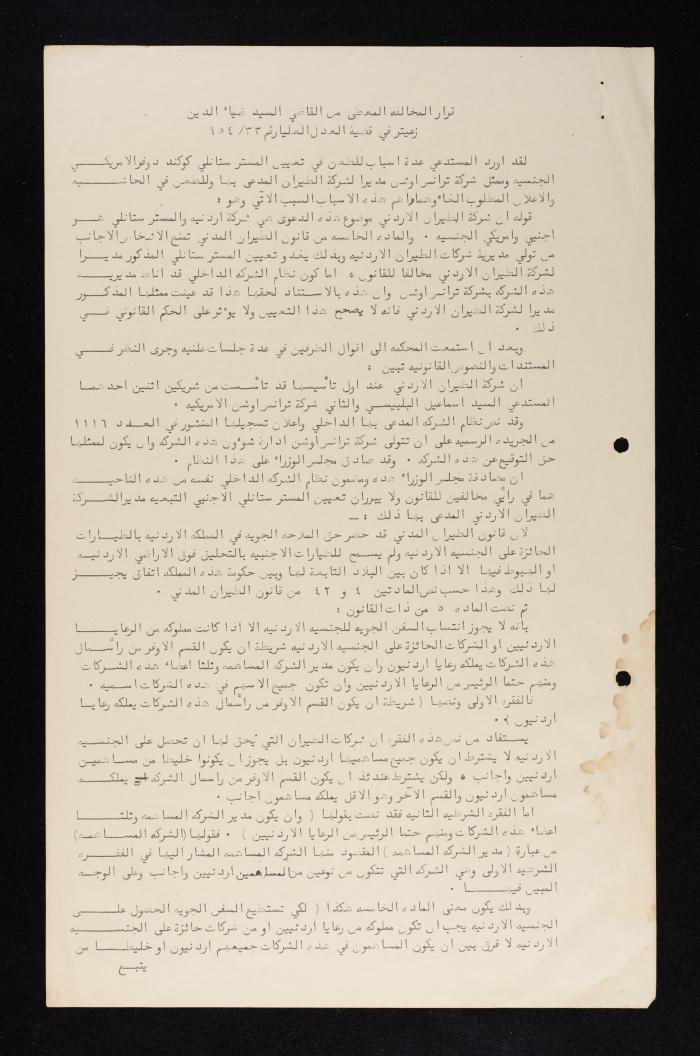 قرار المخالفه المعطى من القاضي السيد ضياء الدين
زعيتر في قضية العدل العليا رقم ٣٣/ ٩٥٤
لقد اورد المستدعي عدة اسباب للطعن في تعيين المستر ستانلي كوكند دوفر الامريكي
الجنسيه وممثل شركة ترانس اوشن مديرا لشركة الطيران المدعى بها وللطعن في الحاشيه
والاعلان المطلوب الغاءهما واهم هذه الاسباب السبب الاتي وهو :
قوله ان شركة الطيران الاردني موضوع هذه الدعوى هي شركة اردنيه والمستر ستانلي هو
اجنبي وامريكي الجنسيه . والماده الخامسه من قانون الطيران المدني تمنع الاشخاص الاجانب
من تولي مديرية شركات الطيران الاردنيه وبذلك يغدو تعيين المستر ستانلي المذكور مديرا
لشركة الطيران الاردني مخالفا للقانون ، اما كون نظام الشركه الداخلي قد اناط مديرية
هذه الشركه بشركة ترانس اوشن وان هذه بالاستناد لحقها هذا قد عينت ممثلها المذكور
مديرا لشركة الطيران الاردني فانه لا يصحح هذا التعيين ولا يؤثر على الحكم القانوني في
ذلك .
وبعد ان استمعت المحكمه الى اقوال الطرفين في عدة جلسات علنيه وجرى النظر في
المستندات والنصوص القانونيه تبين :
ان شركة الطيران الاردني عند اول تأسيسها قد تأسست من شريكين اثنين احدهما
المستدعي السيد اسماعيل البلبيسي والثاني شركة ترانس اوشن الامريكيه .
وقد نص نظام الشركه المدعى بها الداخلي واعلان تسجيلها المنشور في العدد ١١١٦
من الجريده الرسميه على ان تتولى شركة ترانس اوشن ادارة شوءون هذه الشركه وان يكون لممثلها
حق التوقيع عن هذه الشركه . وقد صادق مجلس الوزراء على هذا النظام .
ان مصادقة مجلس الوزراء هذه ومضمون نظام الشركه الداخلي نفسه من هذه الناحيه
هما في رأيي مخالفين للقانون ولا يبرران تعيين المستر ستانلي الاجنبي التبعيه مدير الشركة
الطيران الاردني المدعى بها ذلك : ــ
لان قانون الطيران المدني قد حصر حق الملاحه الجويه في المملكه الاردنيه بالطيارات
الحائزة على الجنسيه الاردنيه ولم يسمح للطيارات الاجنبيه بالتحليق فوق الاراضي الاردنيه
او الهبوط فيها الا اذا كان بين البلاد التابعة لها وبين حكومة هذه المملكه اتفاق يجيز
لها ذلك وهذا حسب نص المادتين ٤ و ٤٢ من قانون الطيران المدني .
ثم نصت الماده ٥ من ذات القانون :
بانه لا يجوز انتساب السفن الجويه للجنسيه الاردنيه الا اذا كانت مملوكه من الرعايا
الاردنيين او الشركات الحائزة على الجنسيه الاردنيه شريطة ان يكون القسم الاوفر من رأسمال
هذه الشركات يملكه رعايا اردنيون وان يكون مدير الشركه المساهمه وثلثا اعضاء هذه الشركات
ومنهم حتما الرئيس من الرعايا الاردنيين وان تكون جميع الاسهم في هذه الشركات اسميه .
فالفقره الاولى ونصها ( شريطة ان يكون القسم الاوفر من رأسمال هذه الشركات يملكه رعايا
اردنيون ) .
يستفاد من نص هذه الفقره ان شركات الطيران التي يحق لها ان تحصل على الجنسيه
الاردنيه لا يشترط ان يكون جميع مساهميها اردنيون بل يجوز ان يكونوا خليطا من مساهمين
اردنيين واجانب ، ولكن يشترط عندئذ ان يكون القسم الاوفر من راسمال الشركه يملكه
مساهمون اردنيون والقسم الآخر وهو الاقل يملكه مساهمون اجانب .
اما الفقره الشرطيه الثانيه فقد نصت بقولها ( وان يكون مدير الشركه المساهمه وثلثا
اعضاء هذه الشركات ومنهم حتما الرئيس من الرعايا الاردنيين ) . فقولها (الشركه المساهمه)
من عبارة ( مدير الشركه المساهمه ) المقصود منها الشركه المساهمه المشار اليها في الفقره
الشرطيه الاولى وهي الشركه التي تتكون من نوعين من المساهمين اردنيين واجانب وعلى الوجه
المبين فيها .
وبذلك يكون معنى الماده الخامسه هكذا ( لكي تستطيع السفن الجويه الحصول على
الجنسيه الاردنيه يجب ان تكون مملوكه من رعايا اردنيين او من شركات حائزة على الجنسيه
الاردنيه لا فرق بين ان يكون المساهمون في هذه الشركات جميعهم اردنيون او خليطا من
يتبع